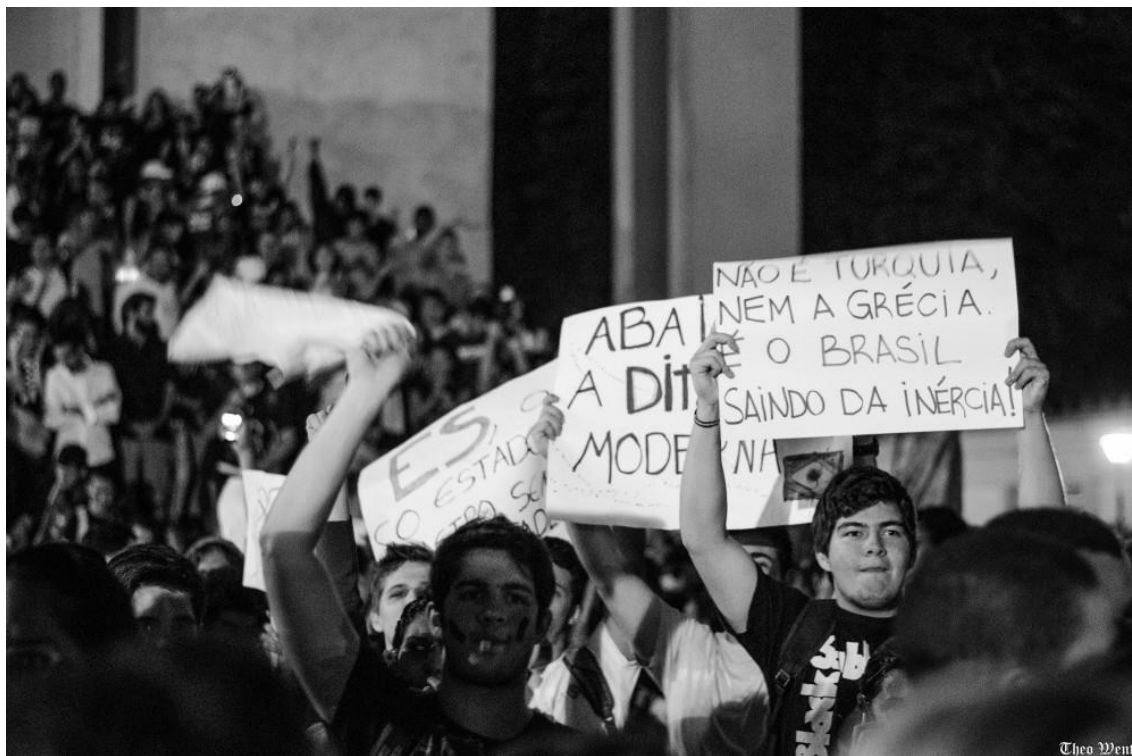 NÃO É TURQUIA,
NEM A GRÉCIA.
É O BRASIL
SAINDO DA INÉRCIA!
ABAI
A DIT
MODERNA
ES,
ESTADO
Black
Theo Went